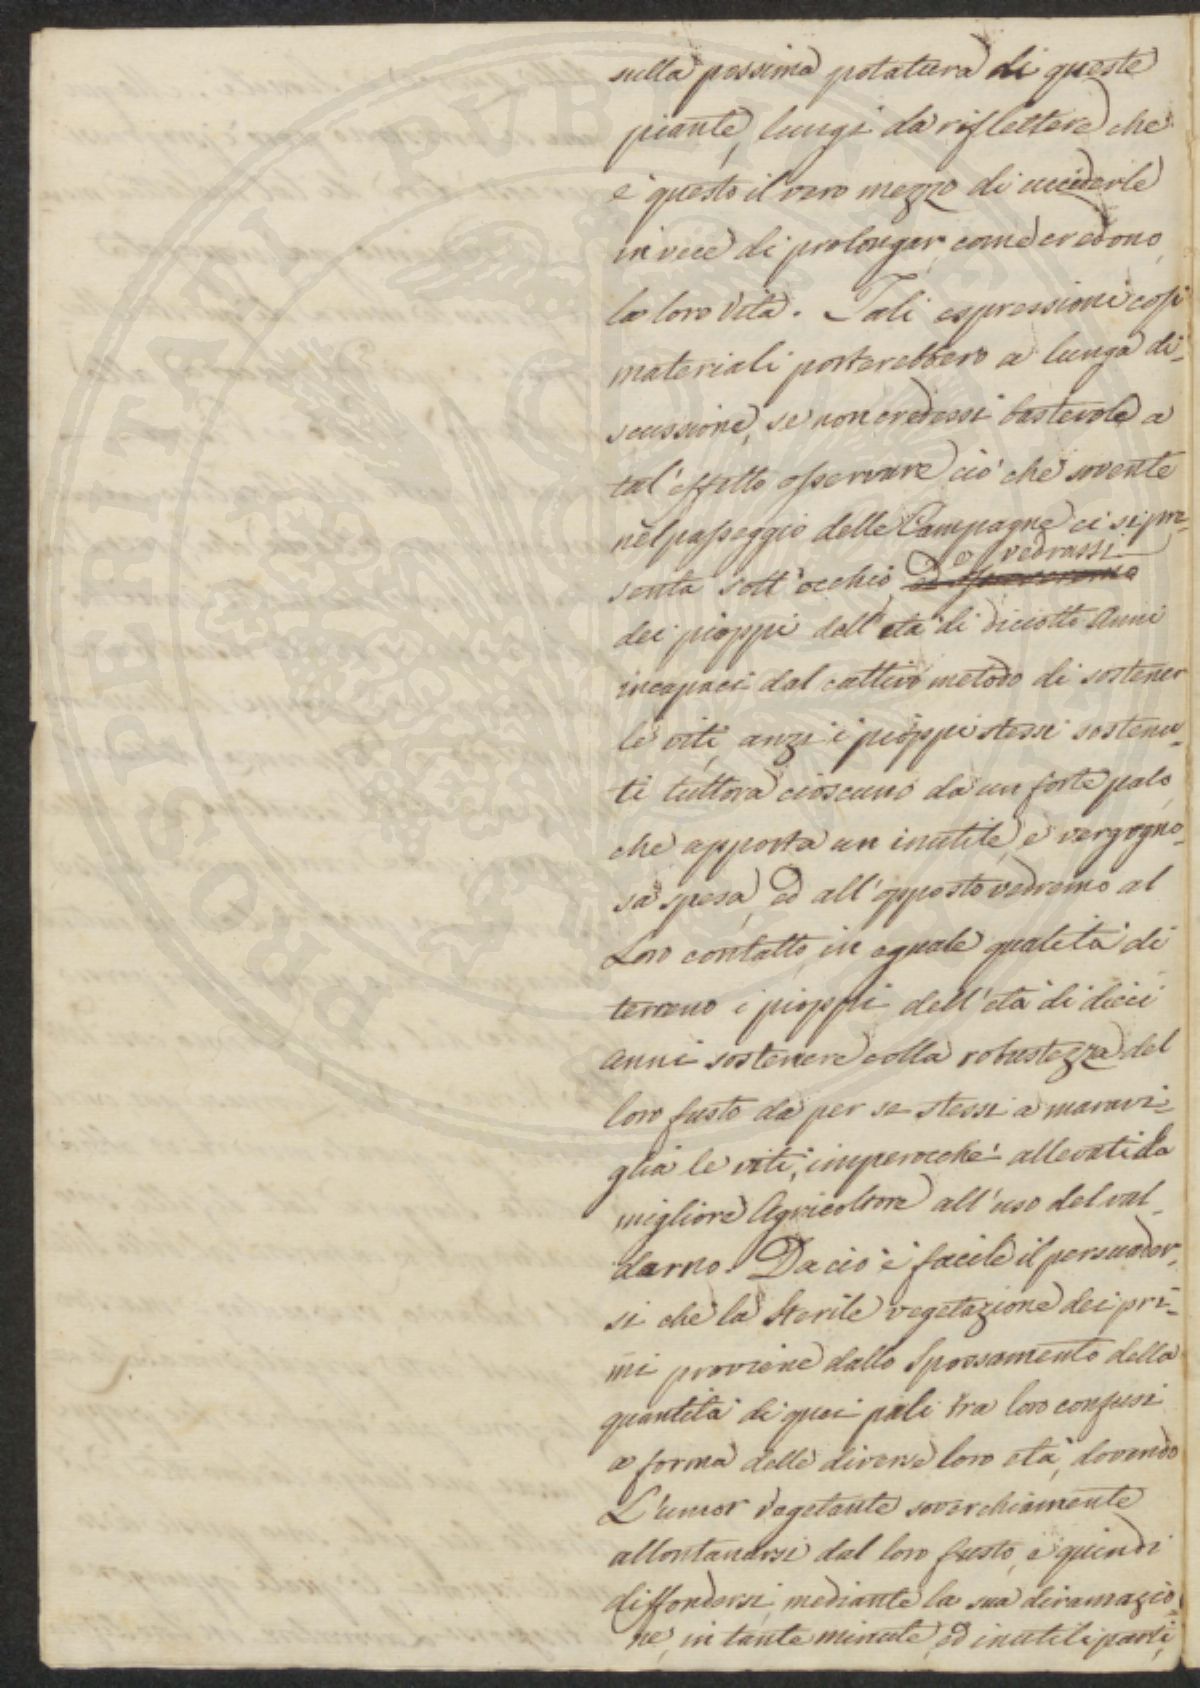 sulla pessima potatura di queste
piante, lungi da riflettere che
e' questo il vero mezzo di ucciderle
in vece di prolongar, come credono,
la loro vita. Tali espressioni così
materiali porterebbero a lunga di-
scussione, se non credessi bastevole a
tal'effetto osservare ciò che sovente
nel passeggio delle Campagne ci si pre-
senta sott'occhio, e vedrassi
dei pioppi dell'età di diciotto Anni
incapaci dal cattivo metodo di sostener
le viti, anzi i pioppi stessi sostenu-
ti tuttora ciascuno da un forte palo,
che apporta un inutile, e vergogno-
sa spesa, ed all'opposto vedremo al
Loro contatto, in eguale qualità di
terreno i pioppi dell'età di dieci
Anni sostenere colla robustezza del
loro fusto da per se stessi a maravi-
glia le viti, imperocchè allevati da
migliore Agricoltore all'uso del val-
darno. Da ciò è facile il persuader-
si che la Sterile vegetazione dei pri-
mi proviene dallo Spossamento della
quantità di quei pali tra loro confusi
a forma delle diverse loro età, dovendo
L'umor vegetante soverchiamente
allontanarsi dal loro fusto, e quindi
diffondersi, mediante la sua diramazio-
ne, in tante minute, ed inutili parti,
PROSPERITATI PUBLICAE